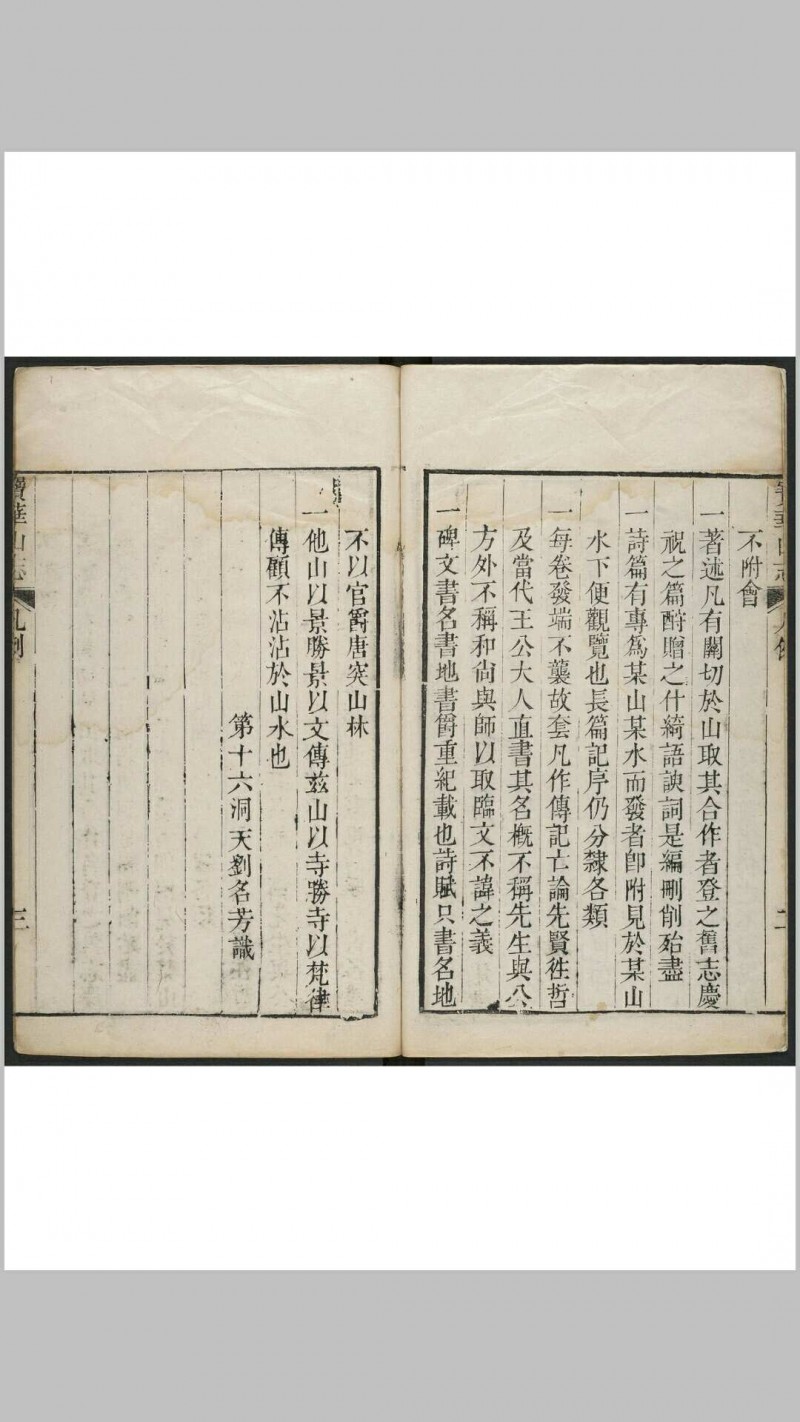 不附會
一著述凡有關切於山取其合作者登之舊志慶
祝之篇酧贈之什綺語諛詞是編刪削殆盡
一詩篇有專為某山某水而發者卽附見於某山
水下便觀覽也長篇記序仍分隸各類
一每卷發端不襲故套凡作傳記亡論先賢徃哲
及當代王公大人直書其名槪不稱先生與公
方外不稱和尙與師以取臨文不諱之義
一碑文書名書地書爵重紀載也詩賦只書名地
不以官爵唐突山林
一他山以景勝景以文傳茲山以寺勝寺以梵律
傳顧不沾沾於山水也
第十六洞天劉名芳識
寶華山志
凡例
三